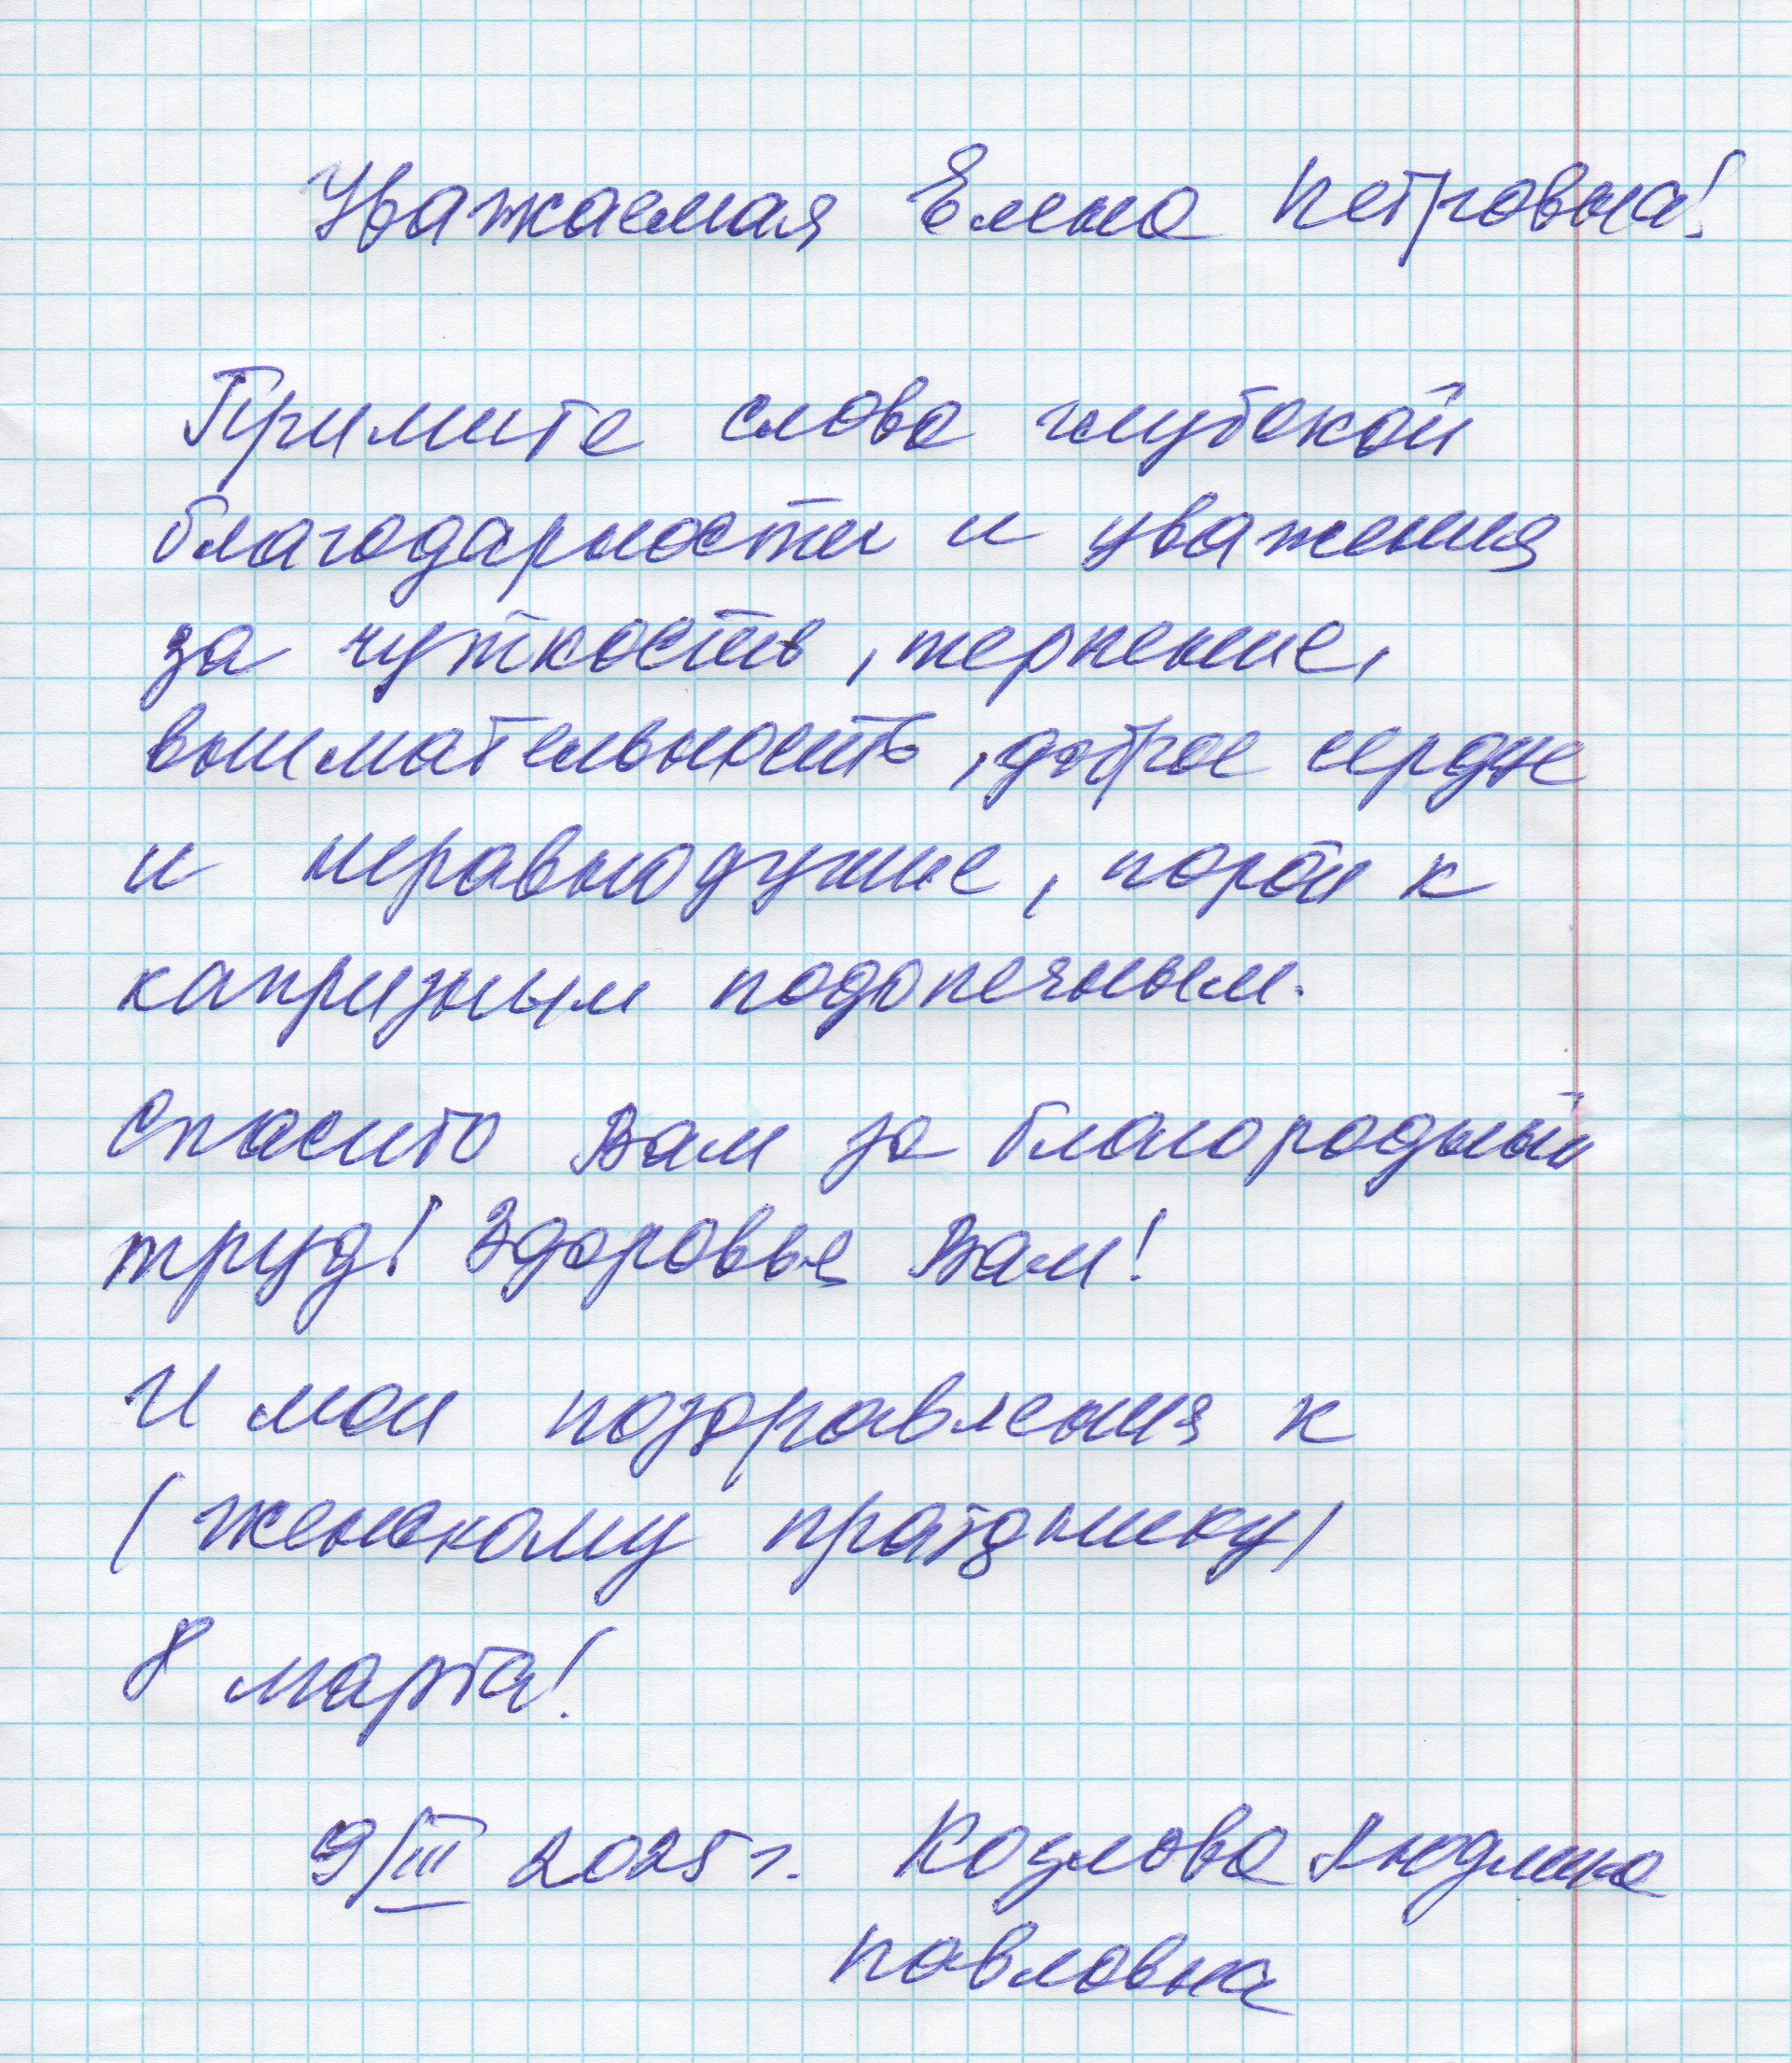 Уважаемая Елена Петровна!
Примите слова глубокой
благодарности и уважения
за чуткость, терпение,
внимательность, доброе сердце
и неравнодушие, порой к
капризным подопечным.
Спасибо Вам за благородный
труд! Здоровье Вам!
И мои поздравления к
(женскому празднику)
8 марта!
9/III 2025 г. Козлова Людмила
Павловна